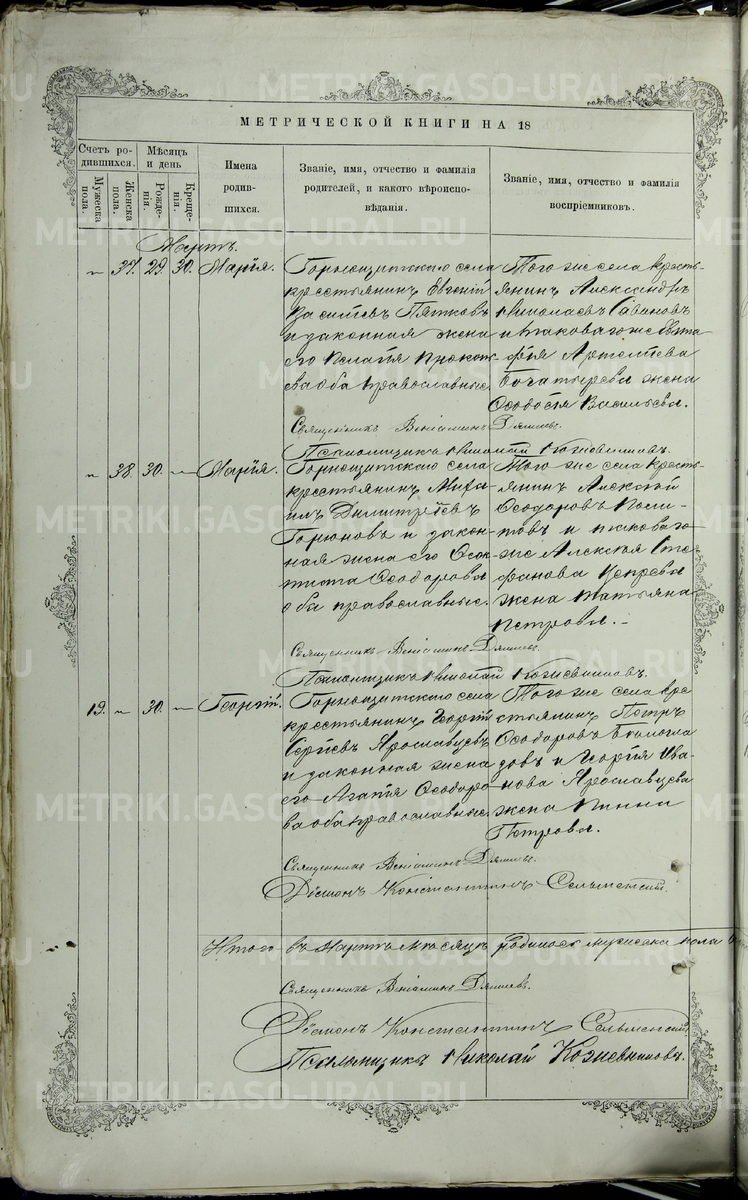 МЕТРИЧЕСКОЙ КНИГИ НА 18
Счетъ родившихся.
Мужеска пола.
Женска пола.
Мѣсяцъ и день
Рожденія.
Крещенія.
Имена родившихся.
Званіе, имя, отчество и фамилія родителей, и какого вѣроисповѣданія.
Званіе, имя, отчество и фамилія воспріемниковъ.
Мартъ.
" 37. 29. 30. Марія.
Горнощитскаго села
крестьянинъ Евгеній
Василіевъ Пятковъ
и законная жена
его Пелагія
ва оба православные.
Того же села кресть-
янинъ Александръ
Николаевъ Савиновъ
и таковаго же
фія Артеміева
Богатырева жена
Ѳеодосія Васильева.
Священникъ Веніаминъ
Псаломщикъ Николай Кожевниковъ.
" 38. 30. " Марія.
Горнощитскаго села
крестьянинъ Миха-
илъ Димитріевъ
Горюновъ и закон-
ная жена его Ѳеок-
тиста Ѳеодорова
оба православные.
Того же села кресть-
янинъ Алексій
Ѳеодоровъ
товъ и таковаго
же Алексія Сте-
фанова
жена Татьяна
Петрова.
Священникъ Веніаминъ
Псаломщикъ Николай Кожевниковъ.
19. " 30. " Георгій.
Горнощитскаго села
крестьянинъ Георгій
Сергіевъ Ярославцевъ
и законная жена
его Агапія Ѳеодоро-
ва оба православные.
Того же села кре-
стьянинъ Петръ
Ѳеодоровъ
довъ и Георгія Ива-
нова Ярославцева
жена
Петрова.
Священникъ Веніаминъ
Діаконъ Константинъ
Итого въ Мартѣ мѣсяцѣ родилось мужеска пола
Священникъ Веніаминъ
Діаконъ Константинъ
Псаломщикъ Николай Кожевниковъ.
METRIKI.GASO-URAL.RU